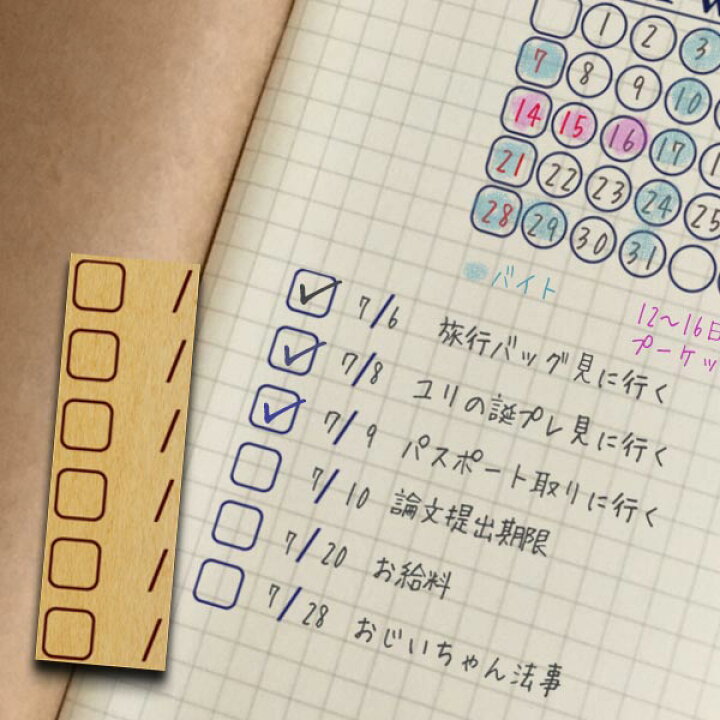 1 2 3
7 8 9 10
14 15 16 17
21 22 23 24 25
28 29 30 31
バイト
12～16日
プーケッ
7/6 旅行バッグ見に行く
7/8 ユリの誕プレ見に行く
7/9 パスポート取りに行く
7/10 論文提出期限
7/20 お給料
7/28 おじいちゃん法事
/
/
/
/
/
/